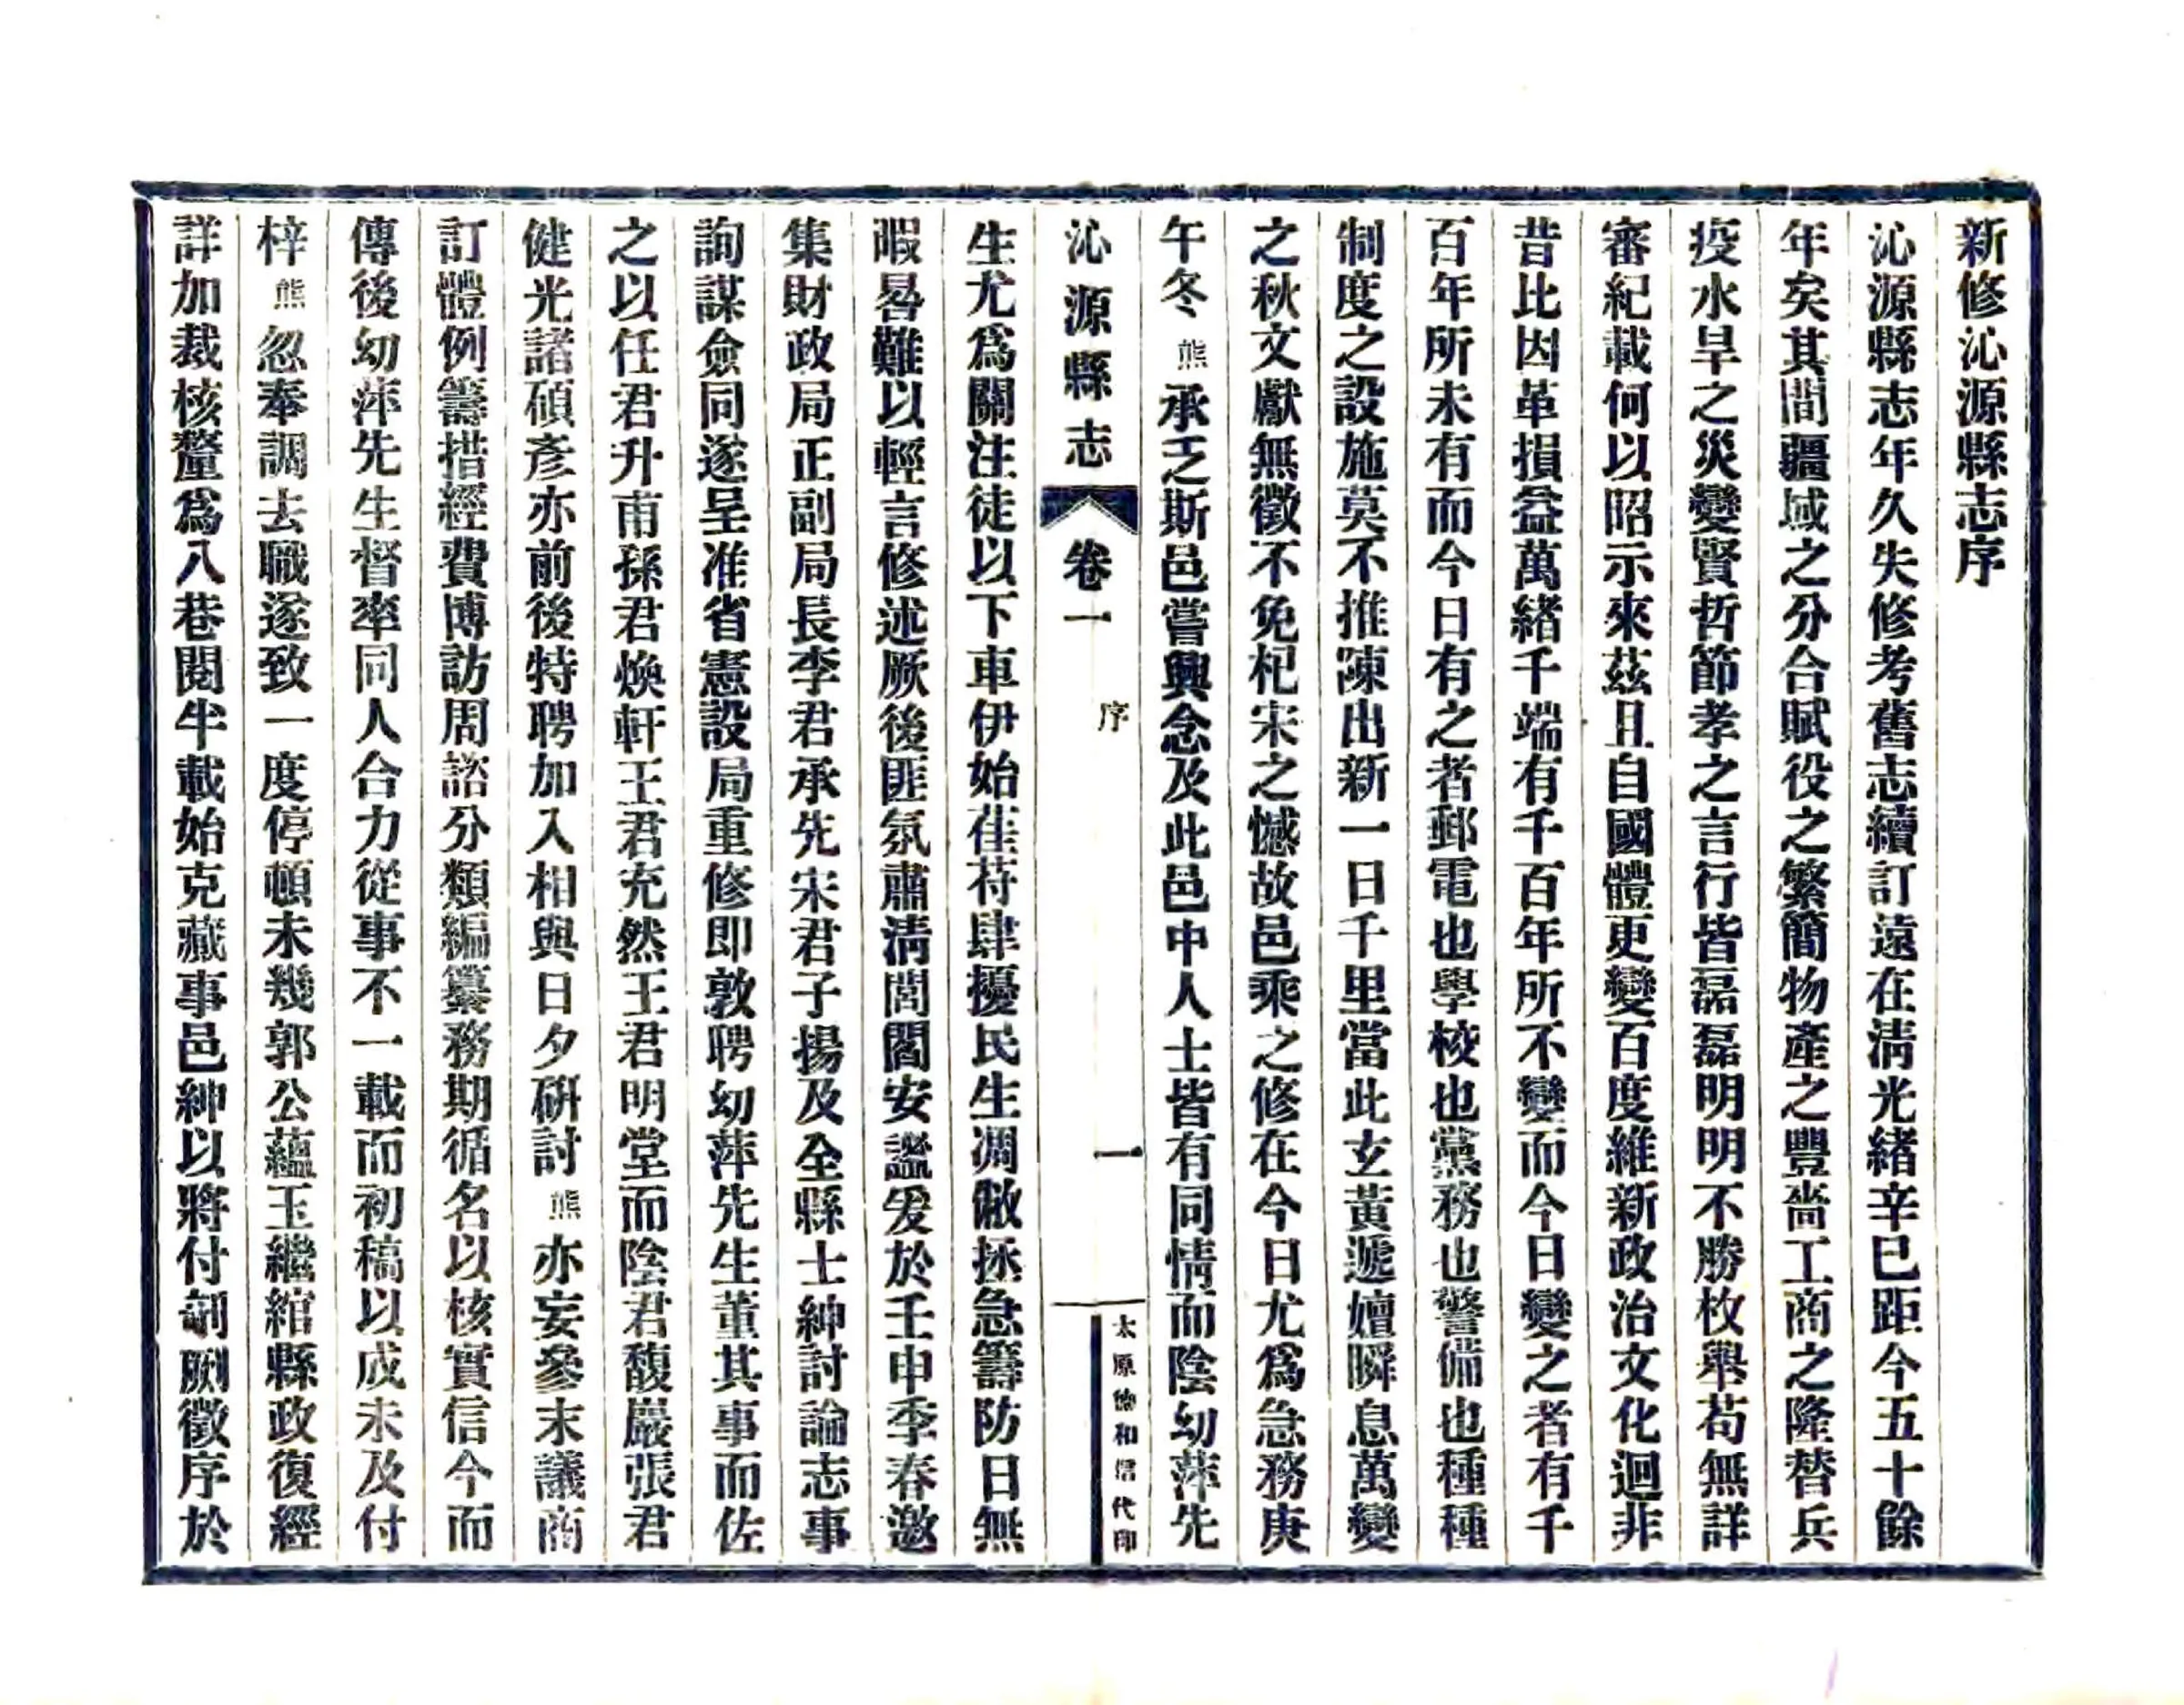 新修沁源縣志序
沁源縣志年久失修考舊志續訂遠在清光緒辛巳距今五十餘
年矣其間疆域之分合賦役之繁簡物產之豐嗇工商之隆替兵
疫水旱之災變賢哲節孝之言行皆磊磊明明不勝枚舉苟無詳
審紀載何以昭示來茲且自國體更變百度維新政治文化迥非
昔比因革損益萬緒千端有千百年所不變而今日變之者有千
百年所未有而今日有之者郵電也學校也黨務也警備也種種
制度之設施莫不推陳出新一日千里當此玄黃遞嬗瞬息萬變
之秋文獻無徵不免杞宋之憾故邑乘之修在今日尤為急務庚
午冬熊承乏斯邑嘗興念及此邑中人士皆有同情而陰幼萍先
沁源縣志 卷一 序 一 太原德和信代印
生尤為關注徒以下車伊始萑苻肆擾民生凋敝拯急籌防日無
暇晷難以輕言修述厥後匪氛肅清閭閻安謐爰於壬申季春邀
集財政局正副局長李君承先宋君子揚及全縣士紳討論志事
詢謀僉同遂呈准省憲設局重修即敦聘幼萍先生董其事而佐
之以任君升甫孫君煥軒王君充然王君明堂而陰君馥巖張君
健光諸碩彥亦前後特聘加入相與日夕研討熊亦妄參末議商
訂體例籌措經費博訪周諮分類編纂務期循名以核實信今而
傳後幼萍先生督率同人合力從事不一載而初稿以成未及付
梓熊忽奉調去職遂致一度停頓未幾郭公蘊玉繼綰縣政復經
詳加裁核釐為八巷閱半載始克蕆事邑紳以將付剞劂徵序於